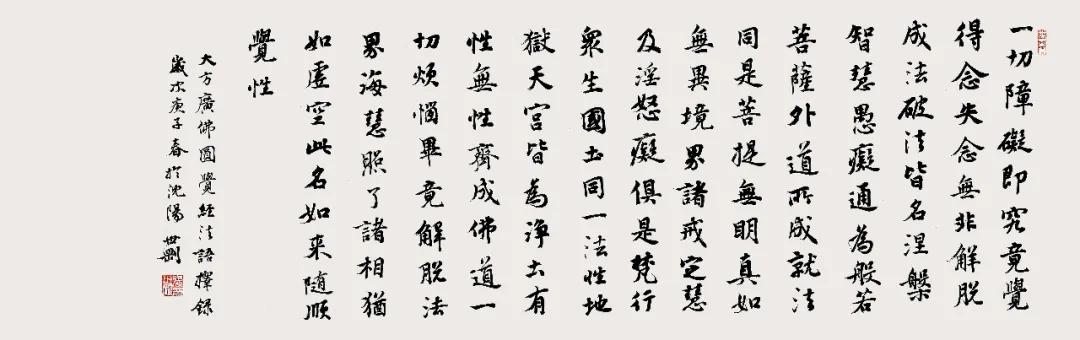 一切障礙即究竟覺
得念失念無非解脫
成法破法皆名涅槃
智慧愚癡通為般若
菩薩外道所成就法
同是菩提無明真如
無異境界諸戒定慧
及淫怒癡俱是梵行
眾生國土同一法性地
獄天宮皆為淨土有
性無性齊成佛道一
切煩惱畢竟解脫法
界海慧照了諸相猶
如虛空此名如来隨順
覺性
大方廣佛圓覺經法語擇錄
歲次庚子春於沈陽 世剛